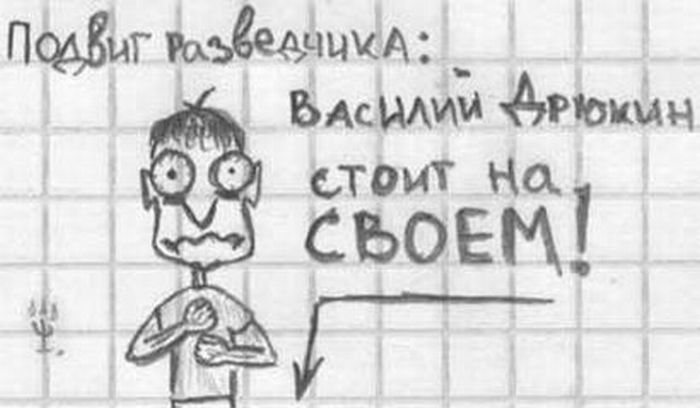 Подвиг разведчика:
Василий Дрюкин
стоит на
СВОЕМ!